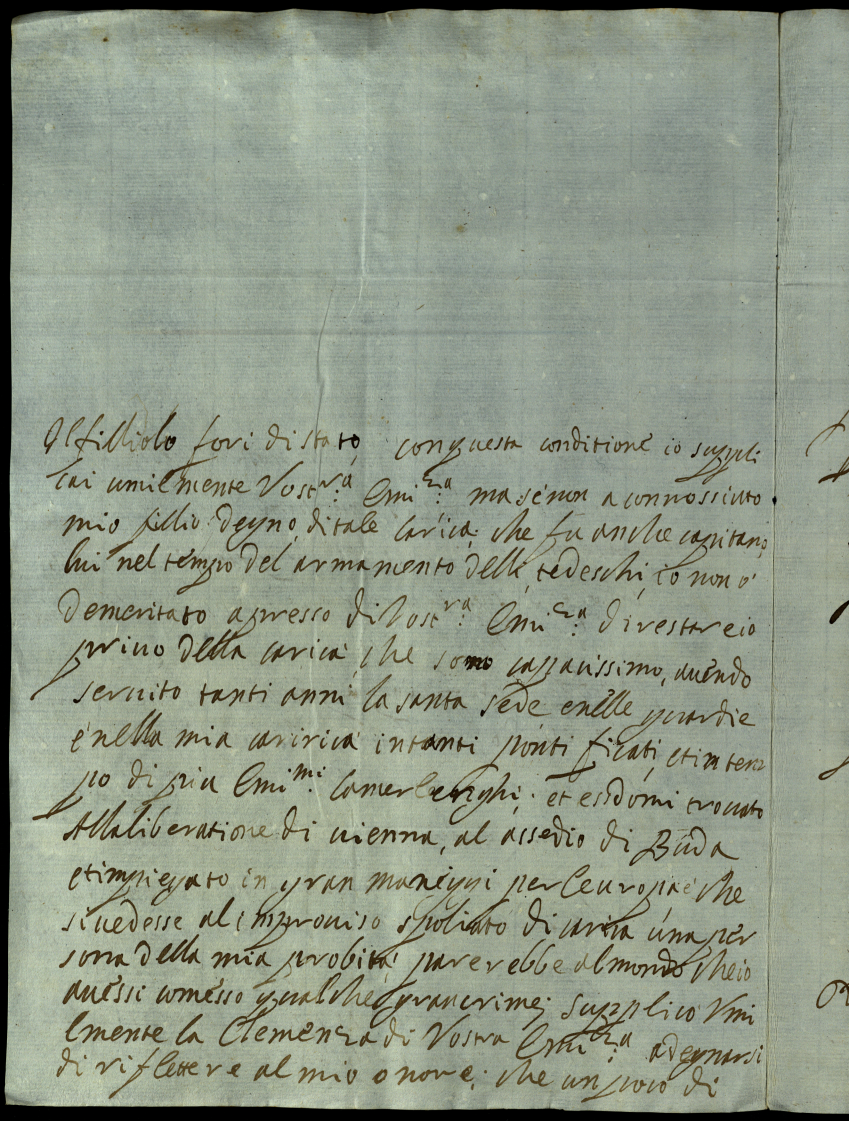 Il filliolo fori di stato, con questa conditione io suppli
cai umilmente Vost:ra Emi:za ma se non a connossiuto
mio fillio degno di tale carica, che fu anche capitano
lui nel tempo del armamento delli tedeschi, io non o
demeritato apresso di Vost:ra Emi:za di restare io
priuo della carica che sono capacissimo, auendo
seruito tanti anni la santa sede enelle guardie
e nella mia caririca in tanti pontificati, et in tem
po di piu Emi:mi Camerlenghi; et essdomi trouato
Alla liberatione di uienna, al assedio di Buda
et impiegato in gran maneggi per leuropa e che
si uedesse al improuiso spoliato di carica una per
sona della mia probita, parerebbe al mondo che io
auessi comesso qualche gran crime; supplico Vmi
lmente la Clemenza di Vostra Emi:za a degnarsi
di riflettere al mio onore; che un poco di